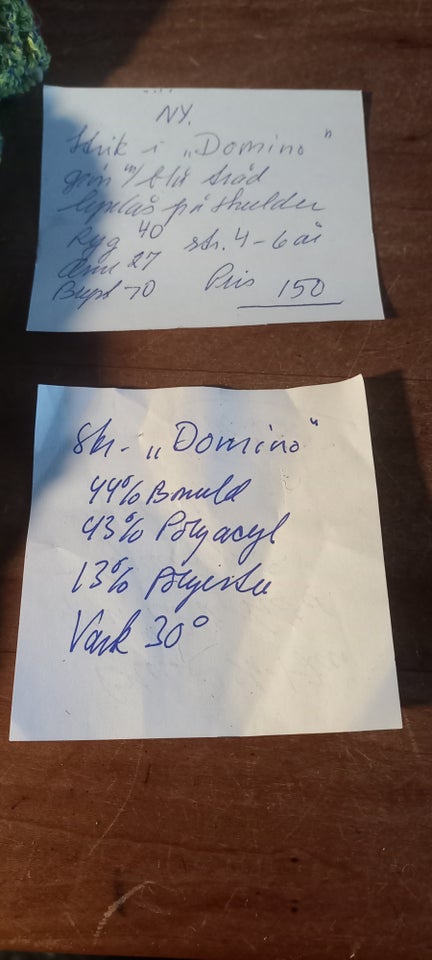 NY.
Strik i „Domino"
grøn m/blå tråd
lynlås på skulder
Ryg 40 str. 4-6 år
Ærme 27
Bryst 70 Pris 150
Str. „Domino"
44% Bomuld
43% Polyacyl
13% Polyester
Vask 30°